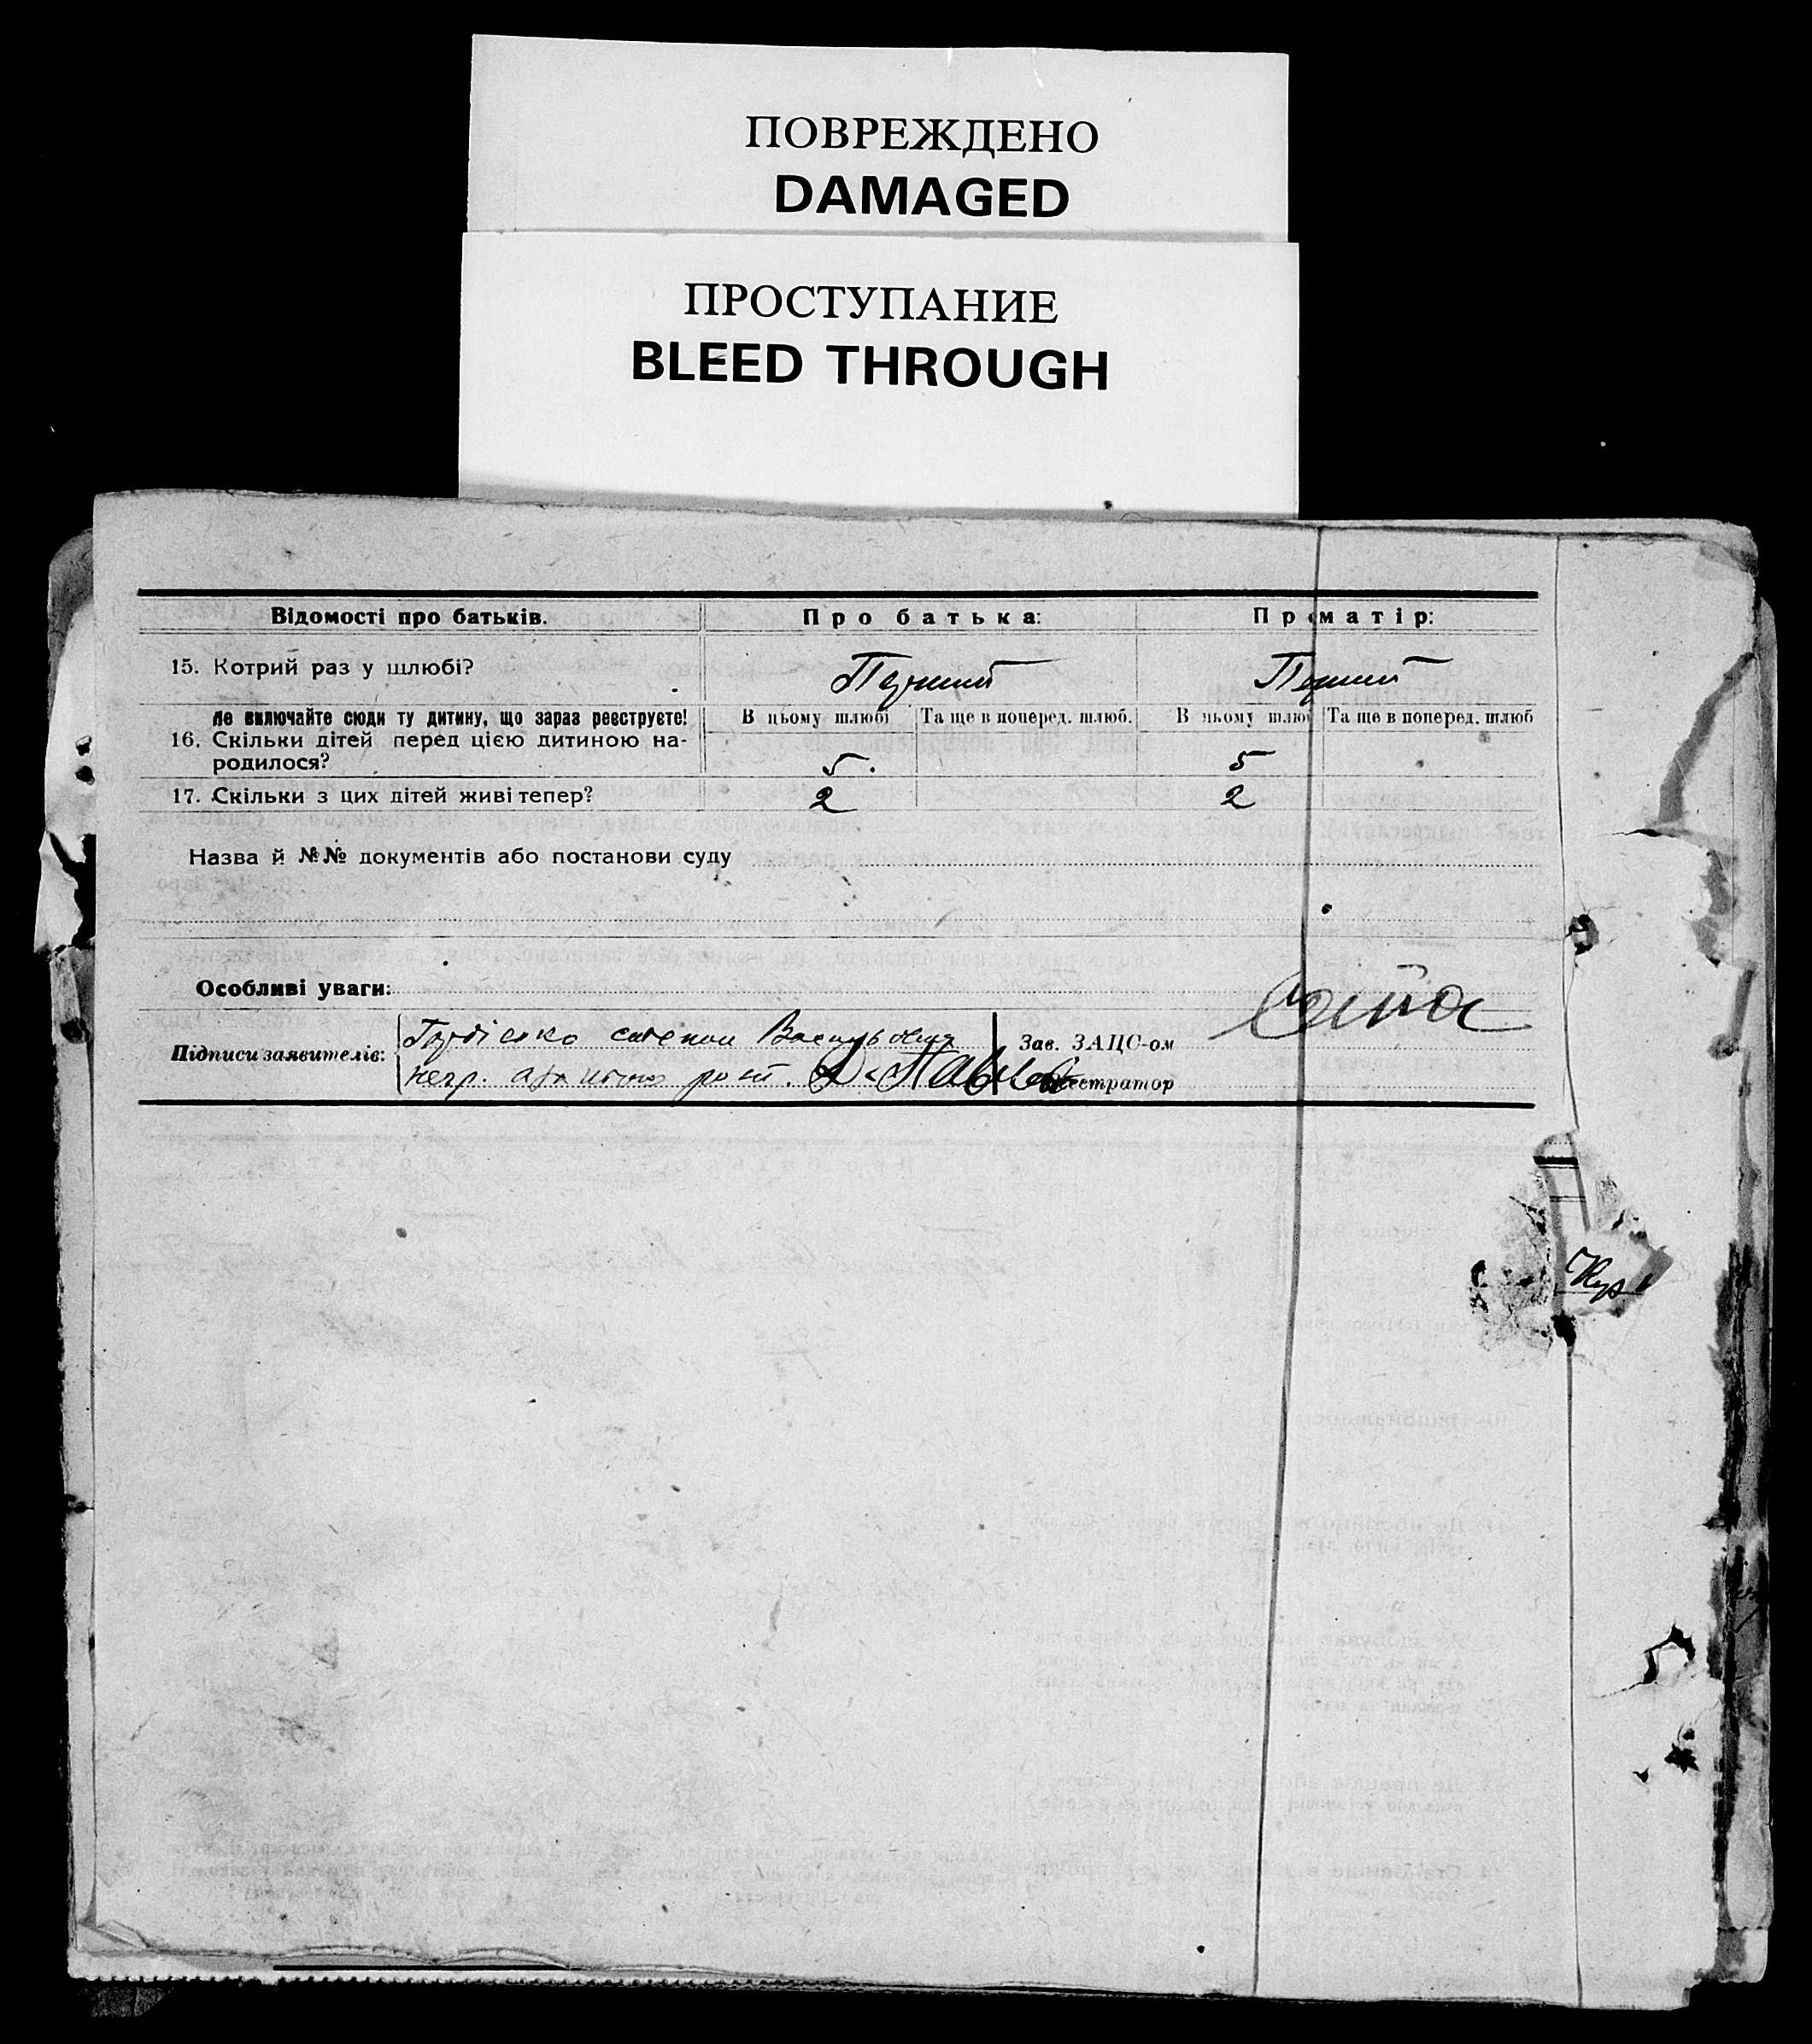 ПОВРЕЖДЕНО
DAMAGED
ПРОСТУПАНИЕ
BLEED THROUGH
Відомості про батьків. Про батька: Про матір:
15. Котрий раз у шлюбі? Перший Перший
Не включайте сюди ту дитину, що зараз реєструєте! В цьому шлюбі Та ще в поперед. шлюб. В цьому шлюбі Та ще в поперед. шлюб
16. Скільки дітей перед цією дитиною на-
родилося? 5. 5
17. Скільки з цих дітей живі тепер? 2 2
Назва й №№ документів або постанови суду
Особливі уваги:
Підписи заявителів: Васильович Зав. ЗАЦС-ом
негр. Реєстратор